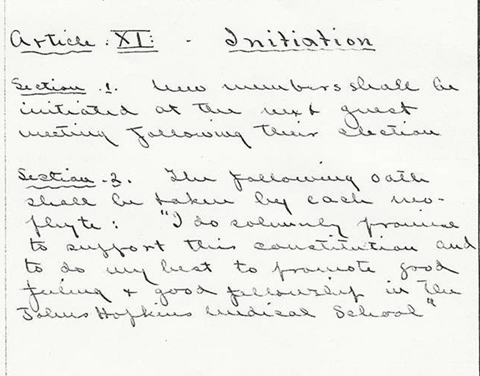 Article: XI: - Initiation
Section .1. New members shall be
initiated at the next guest
meeting following their election
Section .2. The following oath
shall be taken by each neo-
phyte: "I do solemnly promise
to support this constitution and
to do my best to promote good
feeling & good fellowship in the
Johns Hopkins Medical School"